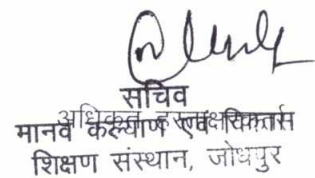 सचिव
अधिकृत हस्ताक्षरकर्ता
मानव कल्याण एवं विकास
शिक्षण संस्थान, जोधपुर